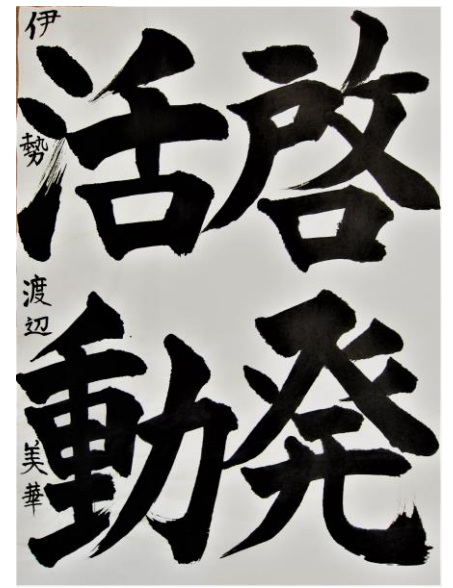 啓発
活動
伊勢 渡辺 美華